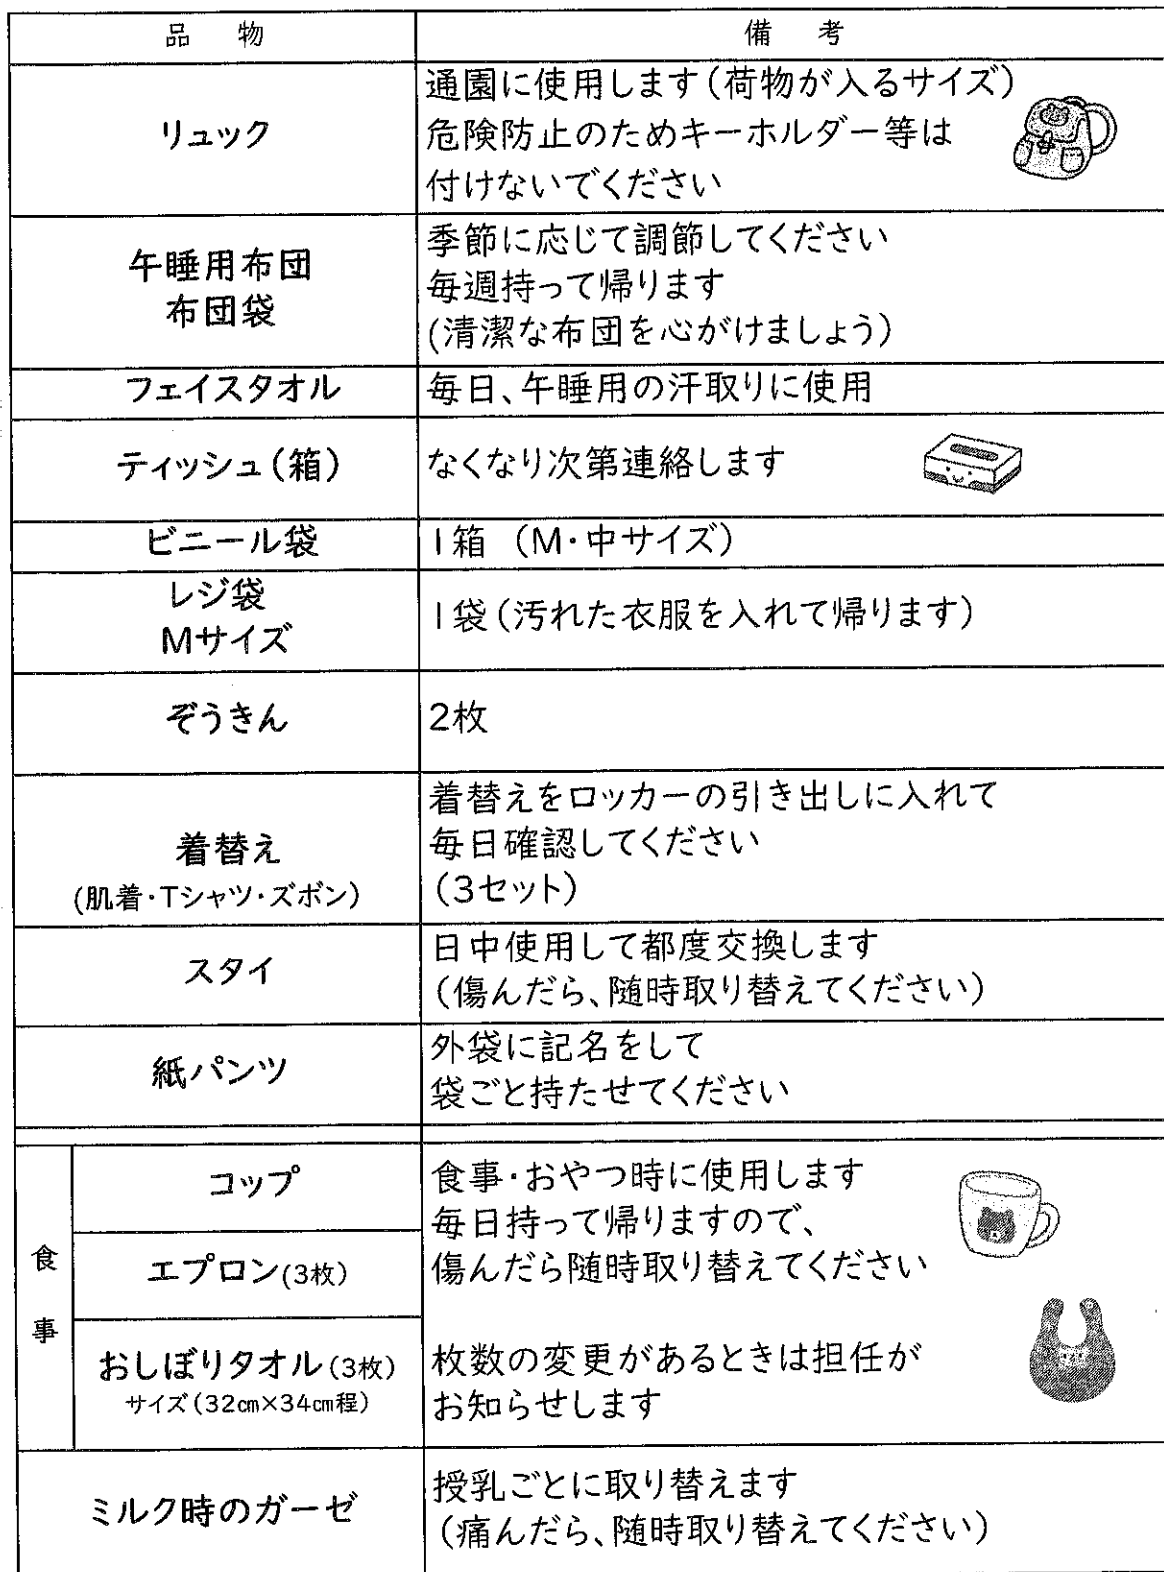 品 物
備 考
リュック
通園に使用します(荷物が入るサイズ)
危険防止のためキーホルダー等は
付けないでください
午睡用布団
布団袋
季節に応じて調節してください
毎週持って帰ります
(清潔な布団を心がけましょう)
フェイスタオル
毎日、午睡用の汗取りに使用
ティッシュ(箱)
なくなり次第連絡します
ビニール袋
1箱 (M・中サイズ)
レジ袋
Mサイズ
1袋(汚れた衣服を入れて帰ります)
ぞうきん
2枚
着替え
(肌着・Tシャツ・ズボン)
着替えをロッカーの引き出しに入れて
毎日確認してください
(3セット)
スタイ
日中使用して都度交換します
(傷んだら、随時取り替えてください)
紙パンツ
外袋に記名をして
袋ごと持たせてください
食事
コップ
エプロン(3枚)
おしぼりタオル(3枚)
サイズ(32㎝×34㎝程)
食事・おやつ時に使用します
毎日持って帰りますので、
傷んだら随時取り替えてください
枚数の変更があるときは担任が
お知らせします
ミルク時のガーゼ
授乳ごとに取り替えます
(痛んだら、随時取り替えてください)